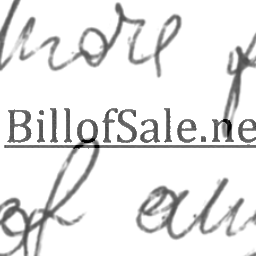 more of
BillofSale.ne
of any